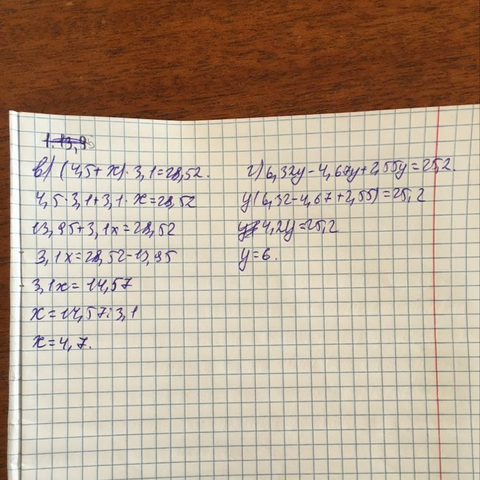 в) (4,5+x)·3,1=28,52.
4,5·3,1+3,1·x=28,52
13,95+3,1x=28,52
3,1x=28,52-13,95
3,1x=14,57
x=14,57:3,1
x=4,7.
г) 6,32y-4,67y+2,55y=25,2.
y(6,32-4,67+2,55)=25,2
4,2y=25,2
y=6.